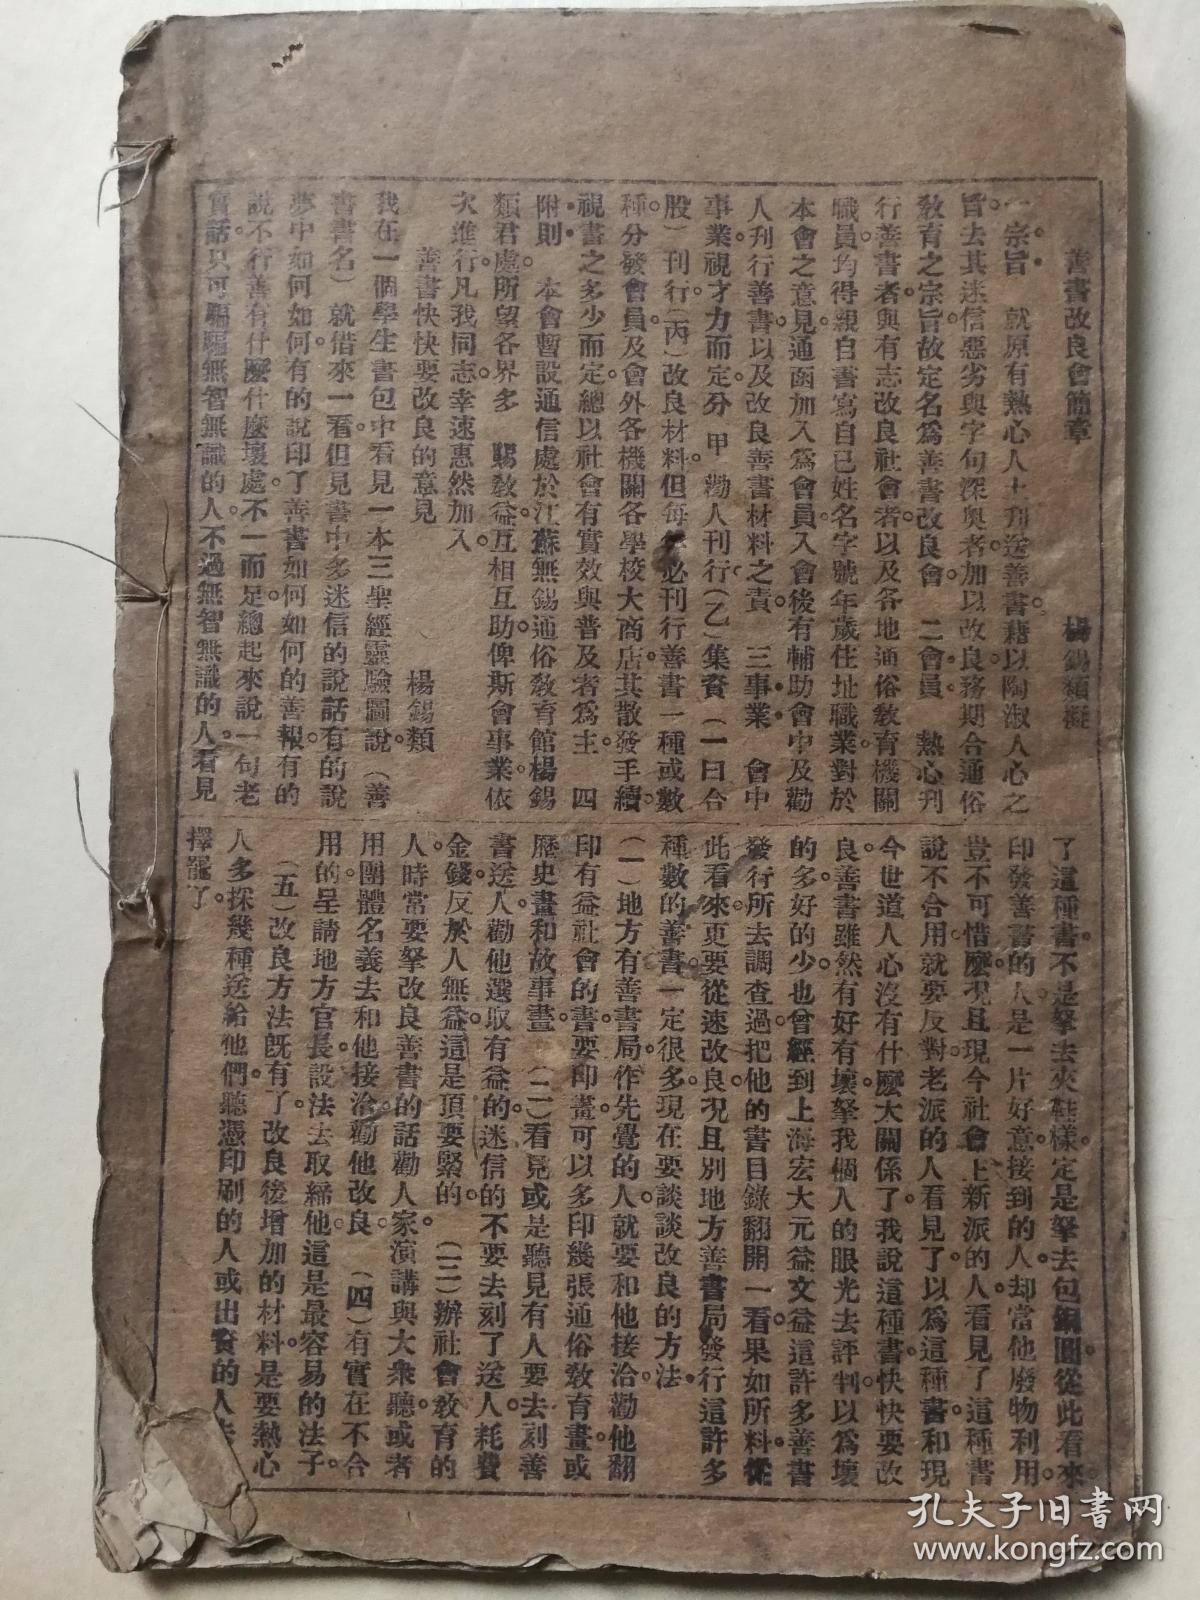 善書改良會簡章　楊錫類擬
一宗旨　就原有熱心人士刊送善書藉以陶淑人心之
旨去其迷信惡劣與字句深奧者加以改良務期合通俗
教育之宗旨故定名爲善書改良會　二會員　熱心刊
行善書者與有志改良社會者以及各地通俗教育機關
職員均得親自書寫自己姓名字號年歲住址職業對於
本會之意見通函加入爲會員入會後有輔助會中及勸
人刊行善書以及改良善書材料之責　三事業　會中
事業視才力而定分　甲　勸人刊行（乙）集資（一曰合
股）刊行（丙）改良材料但每　必刊行善書一種或數
種分發會員及會外各機關各學校大商店其散發手續
視書之多少而定總以社會有實效與普及者爲主　四
附則　本會暫設通信處於江蘇無錫通俗教育館楊錫
類君處所望各界多　賜教益互相互助俾斯會事業依
次進行凡我同志幸速惠然加入
善書快快要改良的意見　楊錫類
我在一個學生書包中看見一本三聖經靈驗圖說（善
書書名）就借來一看但見書中多迷信的說話有的說
夢中如何如何有的說印了善書如何如何的善報有的
說不行善有什麼什麼壞處不一而足總起來說一句老
實話只可騙騙無智無識的人不過無智無識的人看見
了這種書不是拏去夾鞋樣定是拏去包銅圓從此看來
印發善書的人是一片好意接到的人却當他廢物利用
豈不可惜麼况且現今社會上新派的人看見了這種書
說不合用就要反對老派的人看見了以爲這種書和現
今世道人心沒有什麼大關係了我說這種書快快要改
良善書雖然有好有壞拏我個人的眼光去評判以爲壞
的多好的少也曾經到上海宏大元益文益這許多善書
發行所去調查過把他的書目錄翻開一看果如所料從
此看來更要從速改良况且別地方善書局發行這許多
種數的善書一定很多現在要談談改良的方法
（一）地方有善書局作先覺的人就要和他接洽勸他翻
印有益社會的書要印畫可以多印幾張通俗教育畫或
歷史畫和故事畫　（二）看見或是聽見有人要去刻善
書送人勸他選取有益的迷信的不要去刻了送人耗費
金錢反於人無益這是頂要緊的　（三）辦社會教育的
人時常要拏改良善書的話勸人家演講與大衆聽或者
用團體名義去和他接洽勸他改良　（四）有實在不合
用的呈請地方官長設法去取締他這是最容易的法子
（五）改良方法既有了改良後增加的材料是要熱心
人多探幾種送給他們聽憑印刷的人或出資的人去
擇罷了
孔夫子旧书网
www.kongfz.com